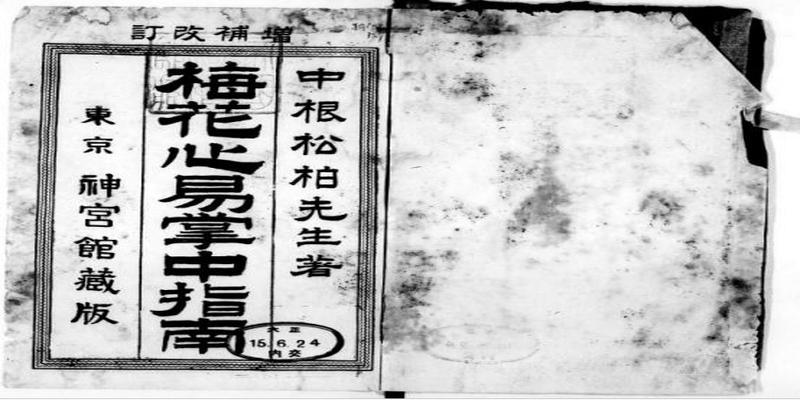 増補改訂
中根松柏先生著
梅花心易掌中指南
東京 神宮館藏版
大正
15.6.24
内交